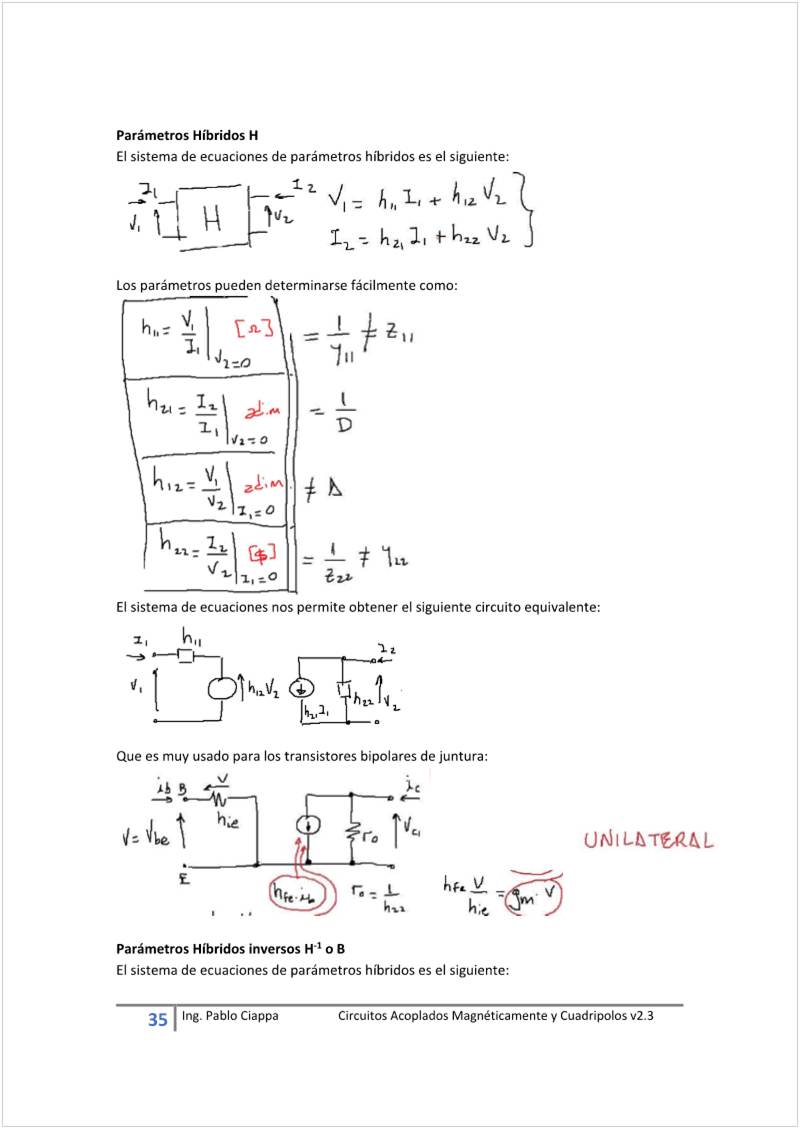 Parámetros Híbridos H
El sistema de ecuaciones de parámetros híbridos es el siguiente:
I₁ H I₂ V₁ V₂ V₁ = h₁₁ I₁ + h₁₂ V₂
I₂ = h₂₁ I₁ + h₂₂ V₂
Los parámetros pueden determinarse fácilmente como:
h₁₁ = V₁/I₁ |V₂=0 [Ω] = 1/y₁₁ ≠ z₁₁
h₂₁ = I₂/I₁ |V₂=0 adim = 1/D
h₁₂ = V₁/V₂ |I₁=0 adim ≠ A
h₂₂ = I₂/V₂ |I₁=0 [$] = 1/z₂₂ ≠ y₂₂
El sistema de ecuaciones nos permite obtener el siguiente circuito equivalente:
I₁ h₁₁ I₂
V₁ h₁₂V₂ h₂₁I₁ h₂₂ V₂
Que es muy usado para los transistores bipolares de juntura:
ib B V ic
hie
V = Vbe ro
UNILATERAL
E hfe·ib ro = 1/h₂₂ hfe V/hie = gm·V
Parámetros Híbridos inversos H⁻¹ o B
El sistema de ecuaciones de parámetros híbridos es el siguiente:
35 Ing. Pablo Ciappa Circuitos Acoplados Magnéticamente y Cuadripolos v2.3